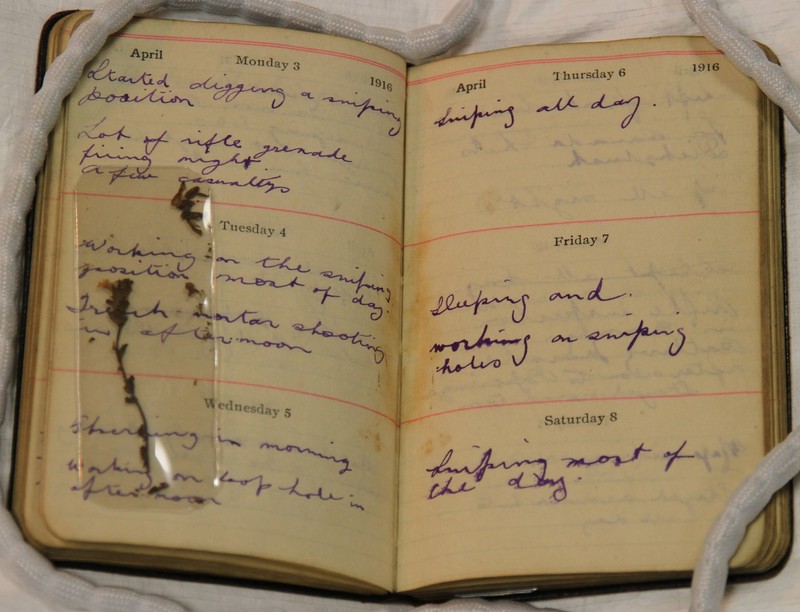 April Monday 3 1916
Started digging a sniping
position
Lot of rifle grenade
firing night
a few casualtys
Tuesday 4
Working on the sniping
position most of day.
Trench mortar shooting
in afternoon
Wednesday 5
Observing in morning
working on loop hole in
afternoon
April Thursday 6 1916
Sniping all day.
Friday 7
Sleeping and.
working on sniping
holes
Saturday 8
Sniping most of
the day.